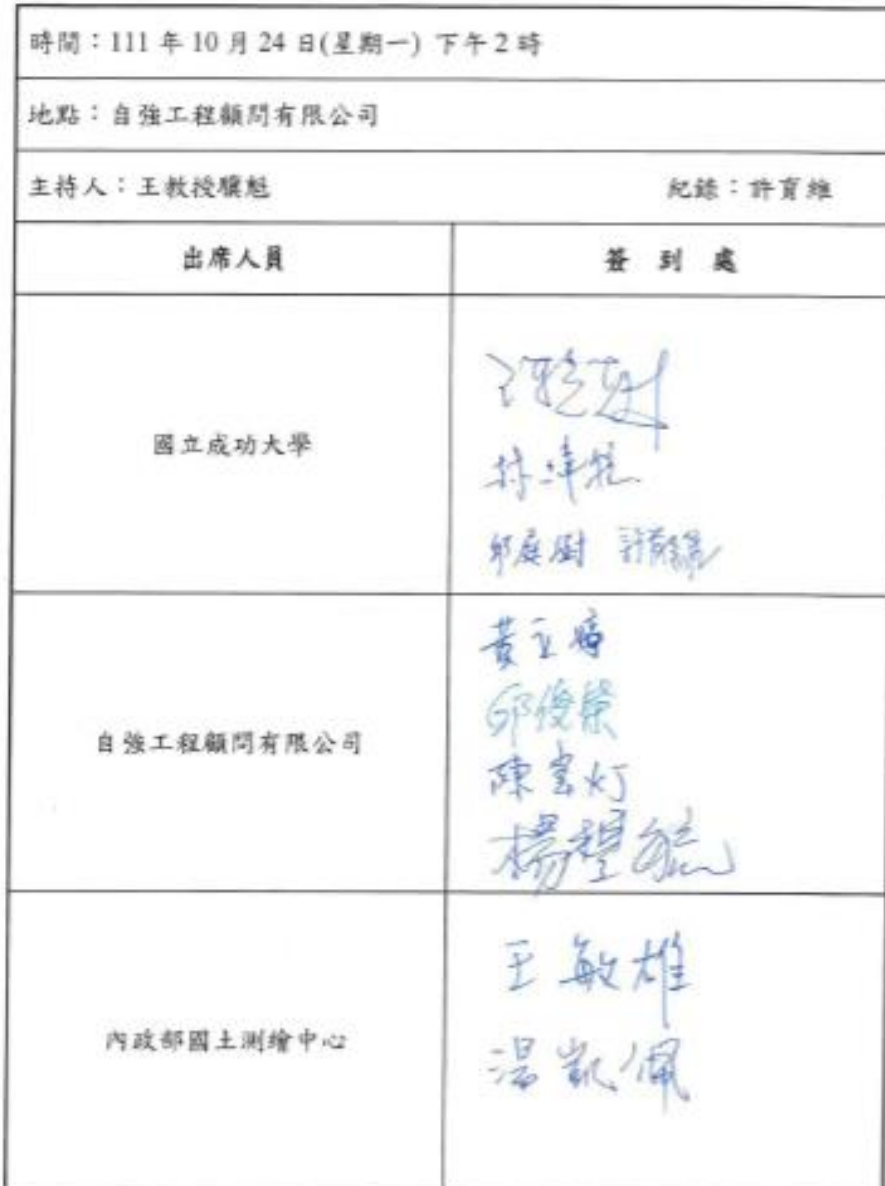 時間：111 年 10 月 24 日(星期一) 下午 2 時
地點：自強工程顧問有限公司
主持人：王教授驥魁 紀錄：許育維
出席人員 簽 到 處
國立成功大學
邱庭澍
自強工程顧問有限公司
黃立
邱俊榮
陳
楊
內政部國土測繪中心
王敏雄
湯凱佩